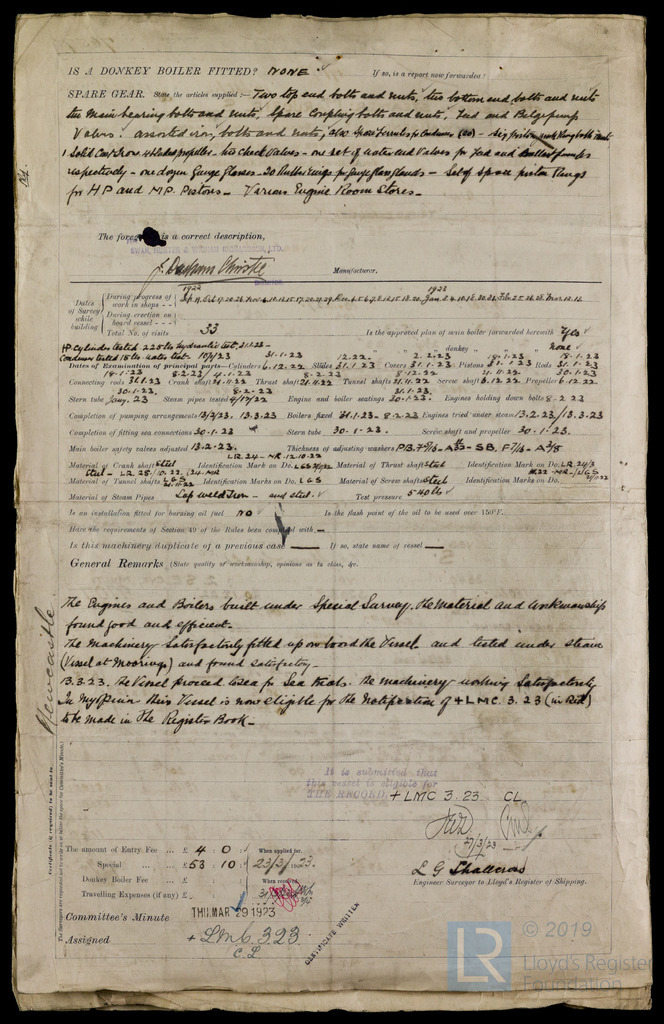 IS A DONKEY BOILER FITTED? NONE If so, is a report now forwarded?
SPARE GEAR. State the articles supplied:— Two top end bolts and nuts, two bottom end bolts and nuts
two Main bearing bolts and nuts, Spare Coupling bolts and nuts, Feed and Bilge pump
Valves. assorted iron, bolts and nuts, also Spare Ferrules for Condenser
1 Solid Cast Iron 4 bladed propeller - two Check Valves - one set of water end Valves for Feed and Ballast pumps
respectively - one dozen Gauge Glasses - 20 Rubber Rings for Gauge Glass Glands - Set of Spare piston Rings
for HP and MP. Pistons - Various Engine Room Stores -
The foregoing is a correct description,
SWAN, HUNTER & WIGHAM RICHARDSON, LTD.
J. Denham Christie Manufacturer.
DIRECTOR
Dates of Survey while building
During progress of work in shops - - 1922 1923
During erection on board vessel - - -
Total No. of visits 33 Is the approved plan of main boiler forwarded herewith Yes
" " " donkey " " " None
HP Cylinder tested 225 lbs hydraulic test. 31.1.23 -
Condenser tested 15 lbs water test
Dates of Examination of principal parts—Cylinders 6.12.22 Slides 31.1.23 Covers 31.1.23 Pistons 31.1.23 Rods 31.1.23
Connecting rods 31.1.23 Crank shaft 21.11.22 Thrust shaft 21.11.22 Tunnel shafts 21.11.22 Screw shaft 6.12.22 Propeller 6.12.22
Stern tube Jany. 23 Steam pipes tested Engine and boiler seatings 30.1.23. Engines holding down bolts 8.2.23
Completion of pumping arrangements 13/2/23. 13.3.23 Boilers fixed 31.1.23 - 8.2.23 Engines tried under steam 13.2.23 / 13.3.23
Completion of fitting sea connections 30.1.23 Stern tube 30.1.23. Screw shaft and propeller 30.1.23.
Main boiler safety valves adjusted 13.2.23. Thickness of adjusting washers
Material of Crank shaft Steel Identification Mark on Do. Material of Thrust shaft Steel Identification Mark on Do.
Material of Tunnel shafts Identification Marks on Do. LGS Material of Screw shafts Steel Identification Marks on Do.
Material of Steam Pipes Lap weld Iron - and steel. Test pressure 540 lbs
Is an installation fitted for burning oil fuel NO Is the flash point of the oil to be used over 150°F.
Have the requirements of Section 49 of the Rules been complied with -
Is this machinery duplicate of a previous case — If so, state name of vessel —
General Remarks (State quality of workmanship, opinions as to class, &c.
The Engines and Boilers built under Special Survey. The Material and Workmanship
found good and efficient.
The Machinery Satisfactorily fitted up on board the Vessel and tested under steam
(Vessel at Moorings) and found satisfactory -
13.3.23. The Vessel proceed to sea for Sea trials. The machinery working Satisfactorily
In My Opinion this Vessel is now eligible for the Notification of + LMC. 3.23 (in Red)
to be made in the Register Book -
Newcastle.
Certificate (if required) to be sent to
The Surveyors are requested not to write on or below the space for Committee's Minute.
It is submitted that
this vessel is eligible for
THE RECORD + LMC 3.23 CL
27/3/23
L G Shallcross
Engineer Surveyor to Lloyd's Register of Shipping.
The amount of Entry Fee ... £ 4 : 0 : When applied for,
Special ... £ 53 : 10 : 23/3/1923.
Donkey Boiler Fee ... £ : : When received,
Travelling Expenses (if any) £ : :
Committee's Minute THU. MAR 29 1923
Assigned + LMC 3.23
C.L
CERTIFICATE WRITTEN
LR © 2019
Lloyd's Register
Foundation